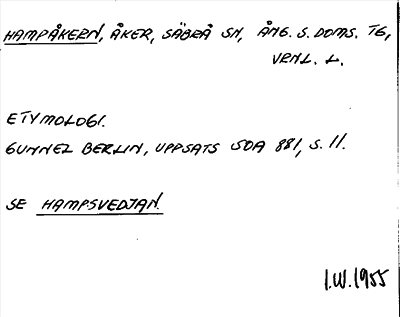 HAMPÅKERN, ÅKER, SÄBRÅ SN, ÅNG. S. DOMS. TG,
VRNL. L.
ETYMOLOGI.
GUNNEL BERLIN, UPPSATS SOA 881, S. 11.
SE HAMPSVEDJAN.
I.W. 1955